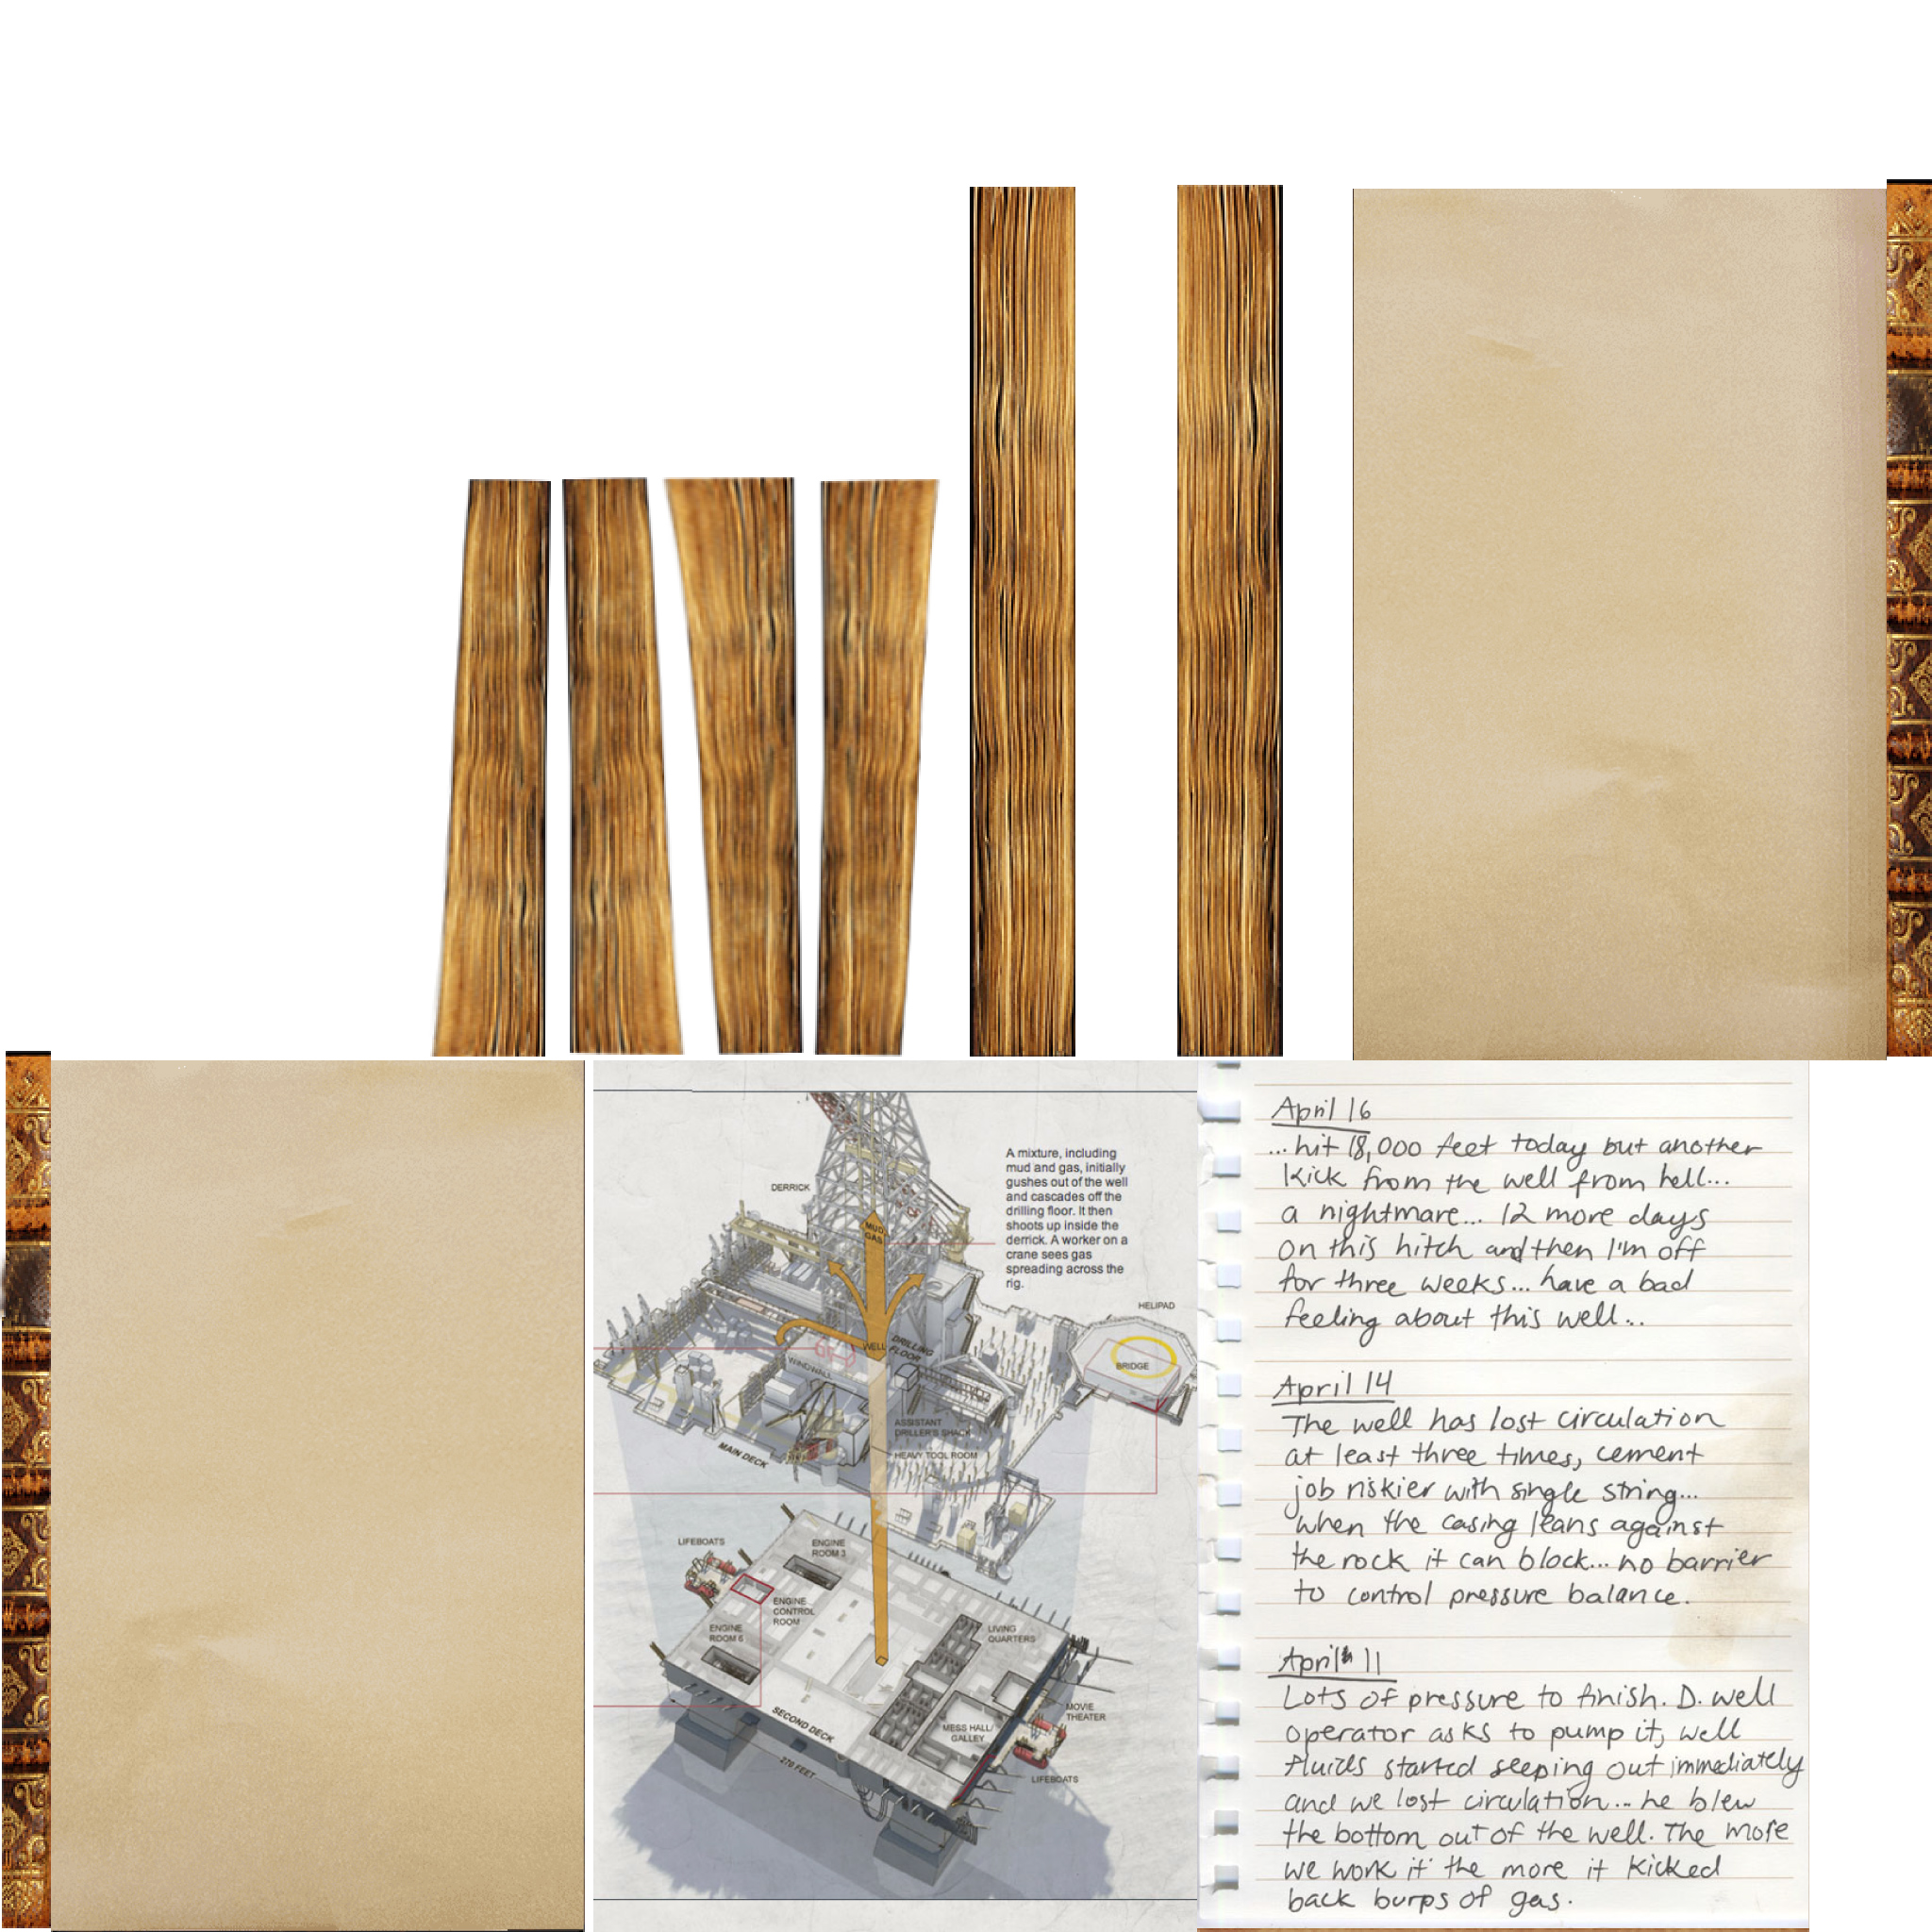 A mixture, including
mud and gas, initially
gushes out of the well
and cascades off the
drilling floor. It then
shoots up inside the
derrick. A worker on a
crane sees gas
spreading across the
rig.
DERRICK
MUD
GAS
HELIPAD
WELL
DRILLING
FLOOR
WINDWALL
BRIDGE
ASSISTANT
DRILLER'S SHACK
HEAVY TOOL ROOM
MAIN DECK
LIFEBOATS
ENGINE
ROOM 3
ENGINE
CONTROL
ROOM
ENGINE
ROOM 6
LIVING
QUARTERS
MOVIE
THEATER
MESS HALL/
GALLEY
SECOND DECK
270 FEET
LIFEBOATS
April 16
...hit 18,000 feet today but another
kick from the well from hell...
a nightmare... 12 more days
on this hitch and then I'm off
for three weeks... have a bad
feeling about this well...
April 14
The well has lost circulation
at least three times, cement
job riskier with single string...
when the casing leans against
the rock it can block... no barrier
to control pressure balance.
April 11
Lots of pressure to finish. D. well
operator asks to pump it, well
fluids started seeping out immediately
and we lost circulation... he blew
the bottom out of the well. The more
we work it the more it kicked
back burps of gas.